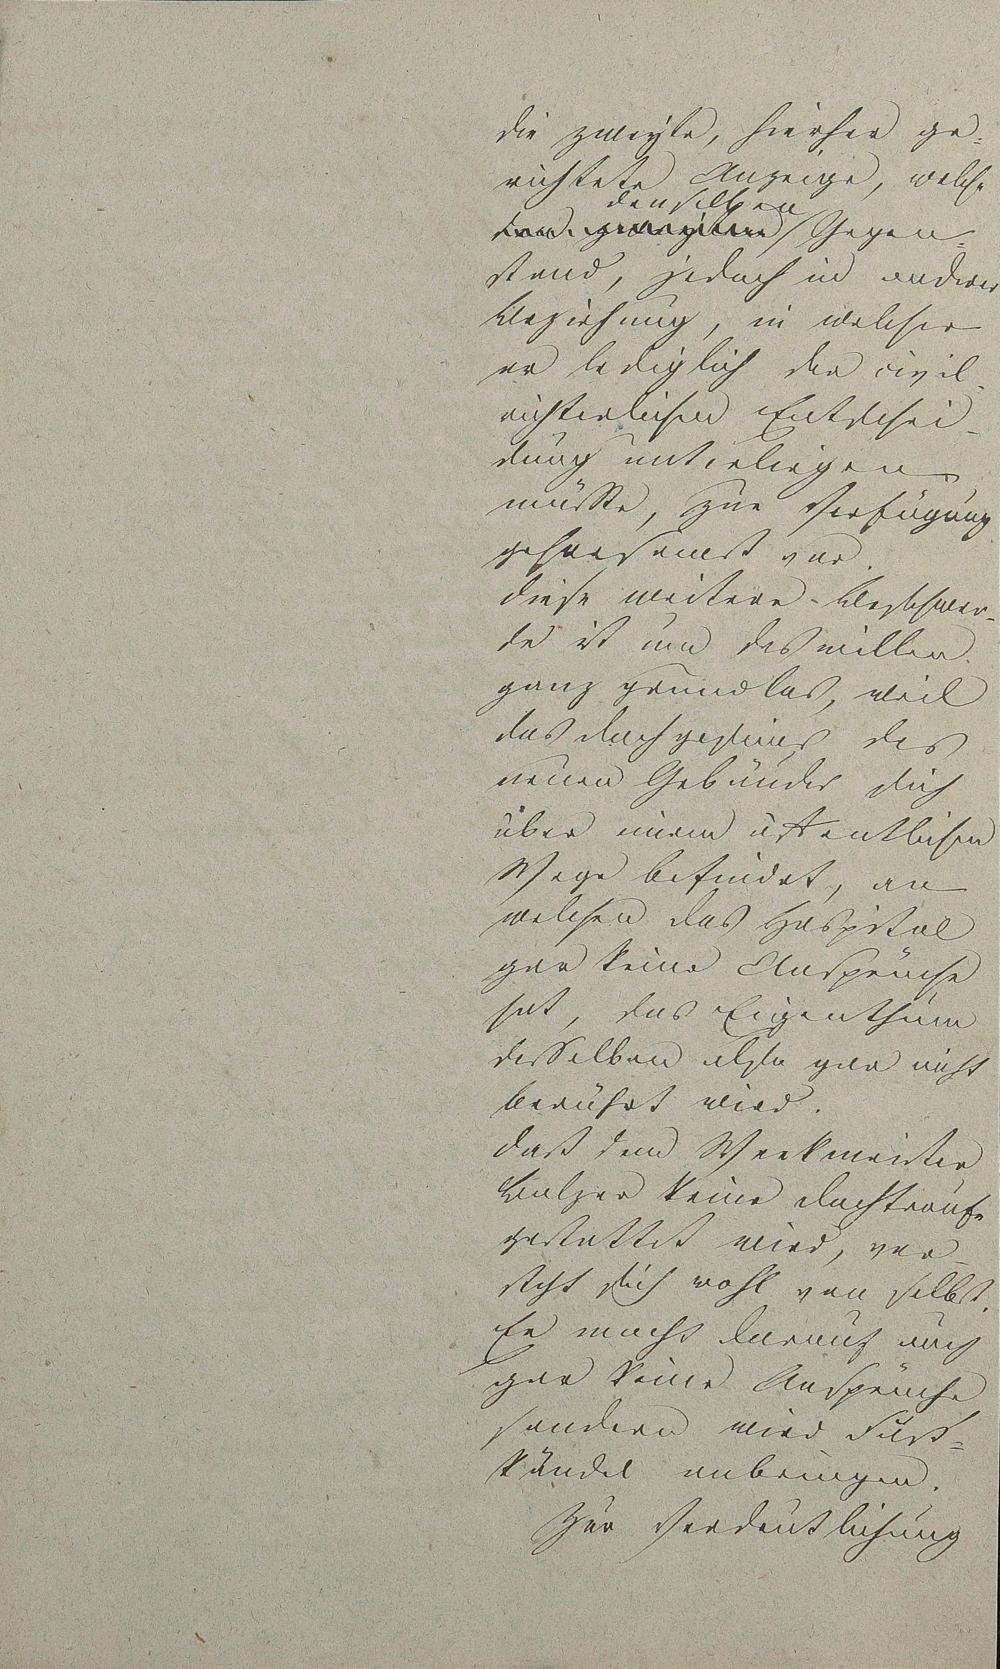 die zweyte, hierher ge-
richtete Anzeige, welche
denselben
Gegen-
stand, jedoch in anderer
Beziehung, in welcher
er lediglich der civil-
richterlichen Entschei-
dung unterliegen
müßte, zur Verfügung
gehorsamst vor.
Diese weitere Beschwer-
de ist um deswillen
ganz grundlos, weil
das Dachgesims des
neuen Gebäudes sich
über einem öffentlichen
Wege befindet, an
welchen das Hospital
gar keine Ansprüche
hat, das Eigenthum
desselben also gar nicht
berührt wird.
Daß dem Werkmeister
Balzer keine Dachtraufe
gestattet wird, ver-
steht sich wohl von selbst.
Er macht darauf auch
gar keine Ansprüche
sondern wird
kändel anbringen.
Zur Verdeutlichung